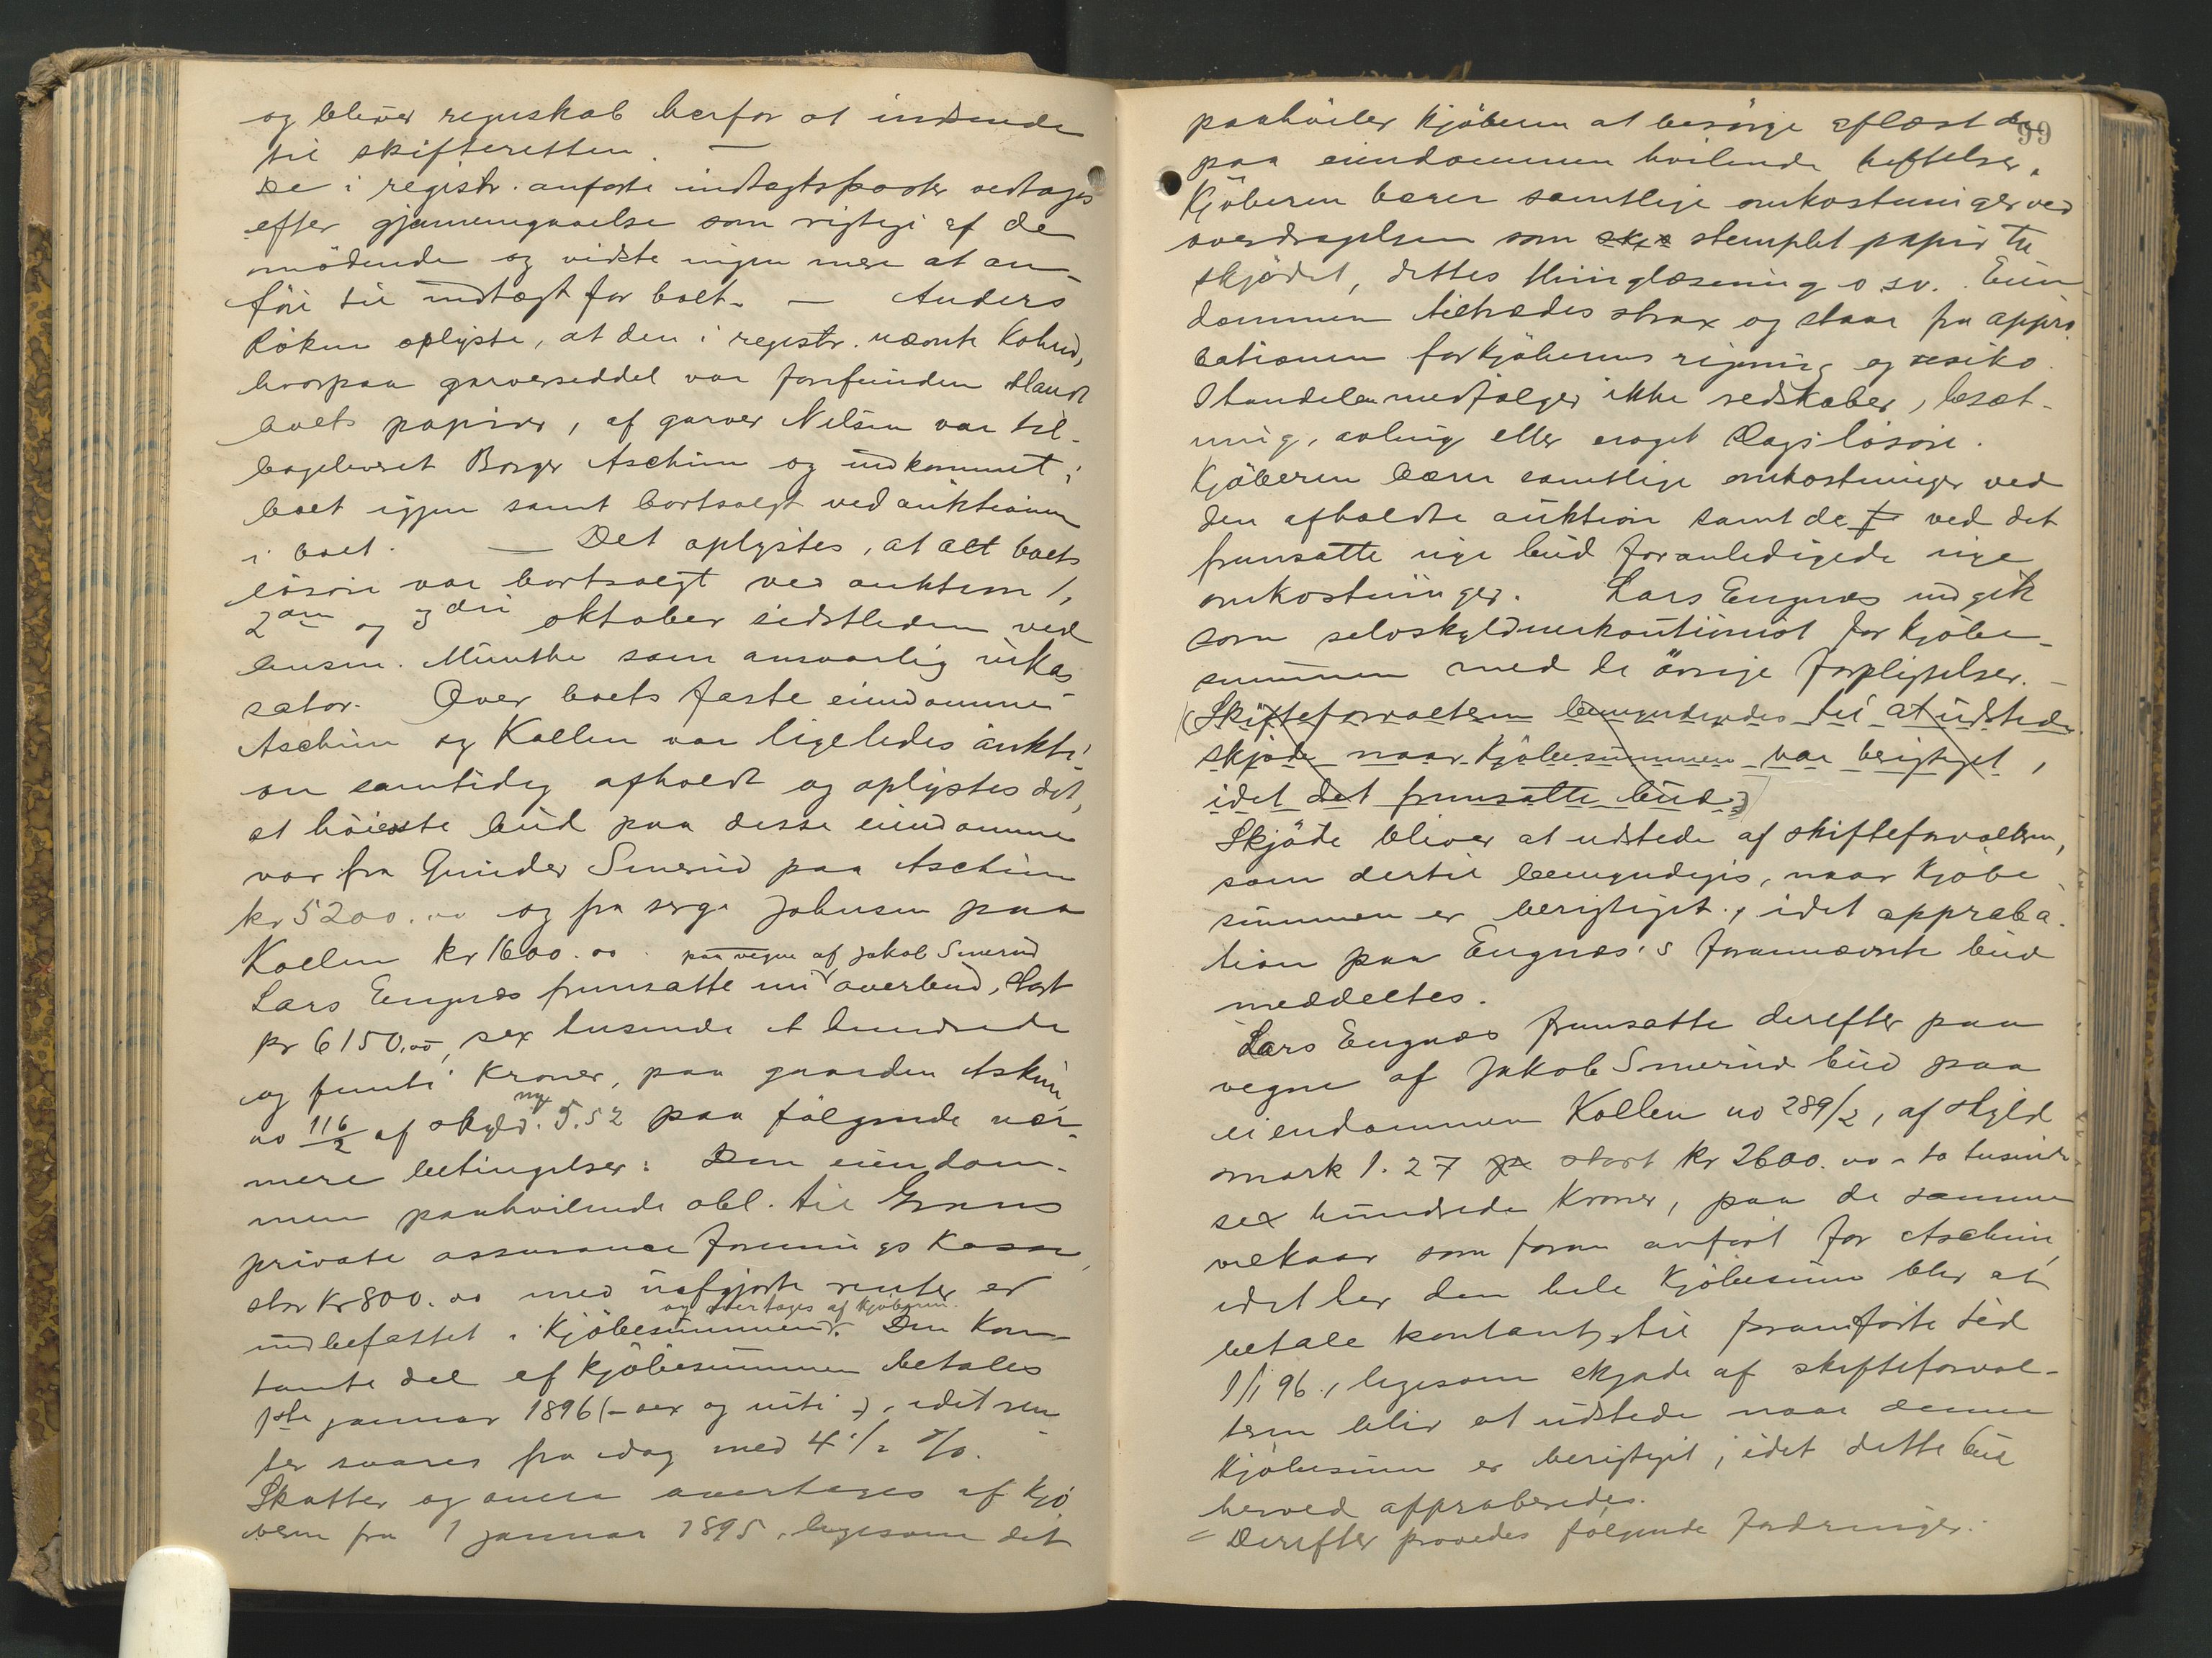 og bliver regnskab herfor at indsende
til skifteretten. —
De i registr. anførte indtægtsposter vedtoges
efter gjennemgaaelse som rigtige af de
mødende og vidste ingen mere at an-
føre til indtægt for boet. — Anders
Røken oplyste, at den i registr. nævnte Kohud,
hvorpaa garverseddel var forefunden blandt
boets papirer, af garver Nilsen var til-
bageleveret Borger Aschim og indkommet i
boet igjen samt bortsolgt ved auktionen
i boet. — Det oplystes, at alt boets
løsøre var bortsolgt ved auktion 1,
2den og 3die oktober sidstleden ved
lensm. Munthe som ansvarlig inkas-
sator. Over boets faste eiendomme
Aschim og Kollen var ligeledes aukti-
on samtidig afholdt og oplystes det,
at høieste bud paa disse eiendomme
var fra Gunder Smerud paa Aschim
kr 5200.00 og fra serg. Johnsen paa
Kollen kr 1600.00. paa vegne af Jakob Smerud
Lars Engnæs fremsatte nu overbud, stort
kr 6150.00, sex tusende et hundrede
og femti Kroner, paa gaarden Askim,
no 116/2 af skyld. ny 5.52 paa følgende nær-
mere betingelser: Den eiendom-
men paahvilende obl. til Grans
private assurance forenings Kasse,
stor Kr 800.00 med uafgjorte renter er
indbefattet i Kjøbesummen og overtages af kjøberen. Den kon-
tante del af kjøbesummen betales
1ste januar 1896 (– sex og niti –), idet ren-
ter svares fra idag med 4 1/2 %.
Skatter og onera overtages af kjø-
beren fra 1 januar 1895, ligesom det
99
paahviler kjøberen at besørge aflæst de
paa eiendommen hvilende heftelser.
Kjøberen bærer samtlige omkostninger ved
overdragelsen som skjø stemplet papir til
skjødet, dettes thinglæsning o.s.v. Eien-
dommen tiltrædes strax og staar fra appro-
bationen for kjøberens regning og resiko.
I handelen medfølger ikke redskaber, besæt-
ning, avling eller noget slags løsøre.
Kjøberen bærer samtlige omkostninger ved
den afholdte auktion samt de f ved det
fremsatte nye bud foranledigede nye
omkostninger. Lars Engnæs indgik
som selvskyldnerkautionist for kjøbe-
summen med de øvrige forpligtelser. —
(Skifteforvalteren bemyndigedes til at udstede
skjøde naar kjøbesummen var berigtiget,
idet det fremsatte bud)
Skjøde bliver at udstede af skifteforvalteren,
som dertil bemyndiges, naar kjøbe-
summen er berigtiget, idet approba-
tion paa Engnæs's forannævnte bud
meddeltes.
Lars Engnæs fremsatte derefter paa
vegne af Jakob Smerud bud paa
eiendommen Kollen no 289/2, af skyld
mark 1.27 stort kr 2600.00 – to tusinde
sex hundrede Kroner, paa de samme
vilkaar som foran anført for Aschim,
idet her den hele Kjøbesum blir at
betale kontant til foranførte tid
1/1 96, ligesom skjøde af skifteforval-
teren blir at udstede naar denne
kjøbesum er berigtiget, idet dette bud
herved approberedes.
Derefter prøvedes følgende fordringer.